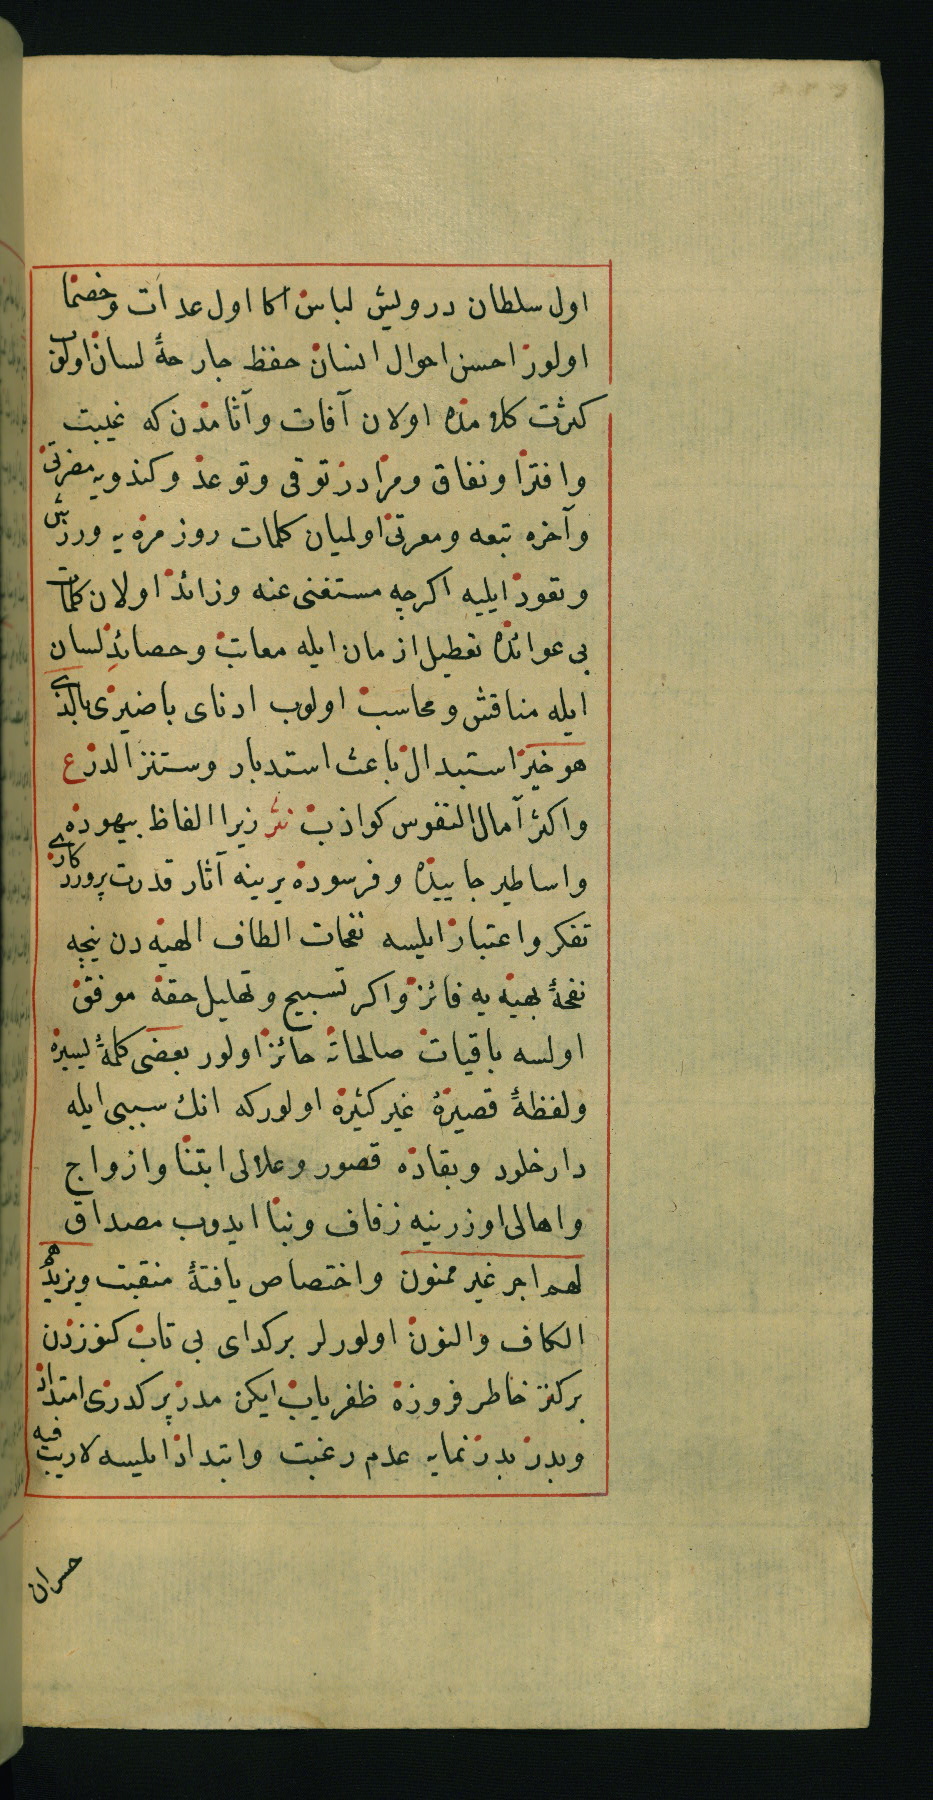 اول سلطان درویش لباس اکا اول عدات وخصما
اولور احسن احوال انسان حفظ جارحهٔ لسان اولوب
کثرت کلامده اولان آفات وآثامدن که غیبت
وافترا ونفاق ومرادر توقی وتوعد وکندویه مضرتی
وآخره تبعه ومعرتی اولمیان کلمات روز مره یه ورزش
وتعود ایلیه اکرچه مستغنی عنه وزائد اولان کلمات
بی عوائده تعطیل ازمان ایله معاتب وحصائد لسان
ایله مناقش ومحاسب اولوب ادنای باضیری بالذی
هو خیر استبدال باعث استدبار وستنزالدر ع
واکثر آمال النفوس کواذب نثر زیرا الفاظ بیهوده
واساطیر جاییده وفرسوده یرینه آثار قدرت پروردکاری
تفکر واعتبار ایلسه نفحات الطاف الهیه دن نیجه
نفحهٔ بهیه یه فائز واکر تسبیح وتهلیل حقه موفق
اولسه باقیات صالحاته حائز اولور بعضی کلمهٔ یسیره
ولفظهٔ قصیرهٔ غیر کثیره اولورکه انك سببی ایله
دار خلود وبقاده قصور وعلالی ابتنا وازواج
واهالی اوزرینه زفاف وبنا ایدوب مصداق
لهم اجر غیر ممنون واختصاص یافتهٔ منقبت ویزیدهم
الکاف والنون اولورلر برکدای بی تاب کنوزدن
برکنز خاطر فروزه ظفریاب ایکن مدر پر کدری امتداد
وبدر بدر نمایه عدم رغبت وابتدار ایلسه لاریب فیه
خسران